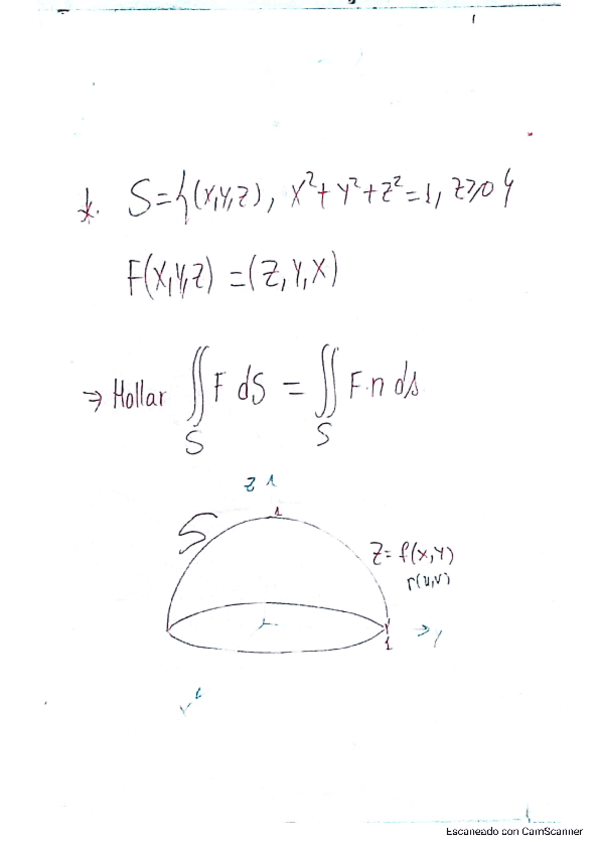 *. S={(x,y,z), x²+y²+z²=1, z≥0}
F(x,y,z) =(z,y,x)
⇒ Hallar ∬_S F dS = ∬_S F·n ds
z 1
1
S
z=f(x,y)
r(u,v)
1
Escaneado con CamScanner